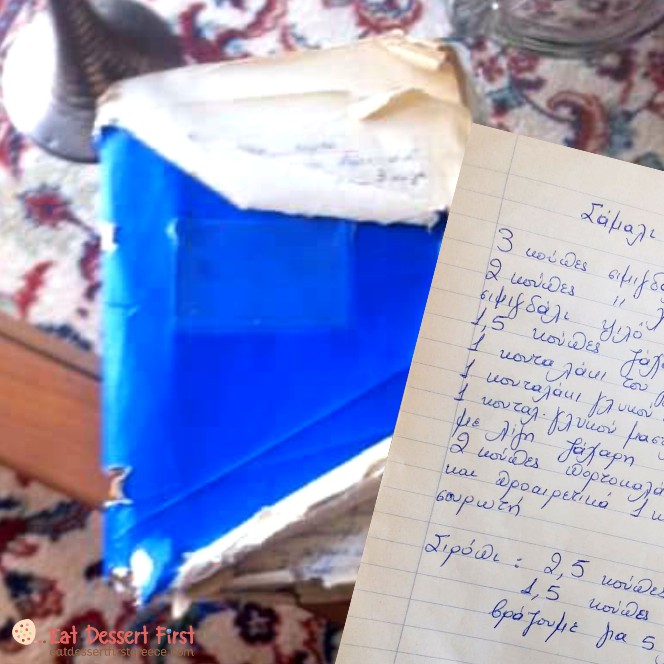 Σάμαλι
3 κούπες σιμιγδά
2 κούπες "
σιμιγδάλι ψιλό
1,5 κούπες ζάχα
1 κουταλάκι του
1 κουταλάκι γλυκού
1 κουταλ. γλυκού μαστ
με λίγη ζάχαρη
2 κούπες πορτοκαλά
και προαιρετικά 1 κ
σουρωτή
Σιρόπι: 2,5 κούπες
1,5 κούπες
βράζουμε για 5
Eat Dessert First
eatdessertfirstgreece.com